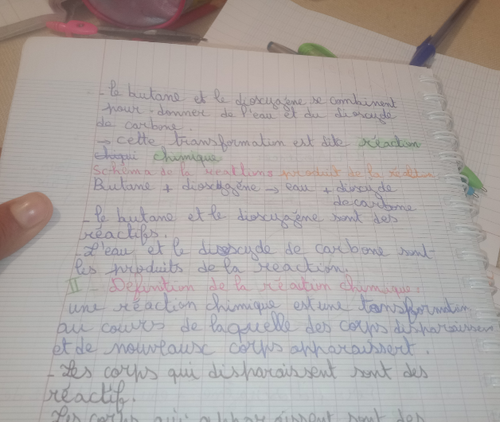 - le butane et le dioxygène se combinent
pour donner de l'eau et du dioxyde
de carbone.
→ cette transformation est dite réaction
chimique
Schéma de la réaction produit de la
Butane + dioxygène → eau + dioxyde
de carbone
- le butane et le dioxygène sont des
réactifs.
- L'eau et le dioxyde de carbone sont
les produits de la réaction.
II - Définition de la réaction chimique.
une réaction chimique est une transformation
au cours de laquelle des corps disparaissent
et de nouveaux corps apparaissert.
- Les corps qui disparaissent sont des
réactifs.
Les corps qui apparaissent sont des